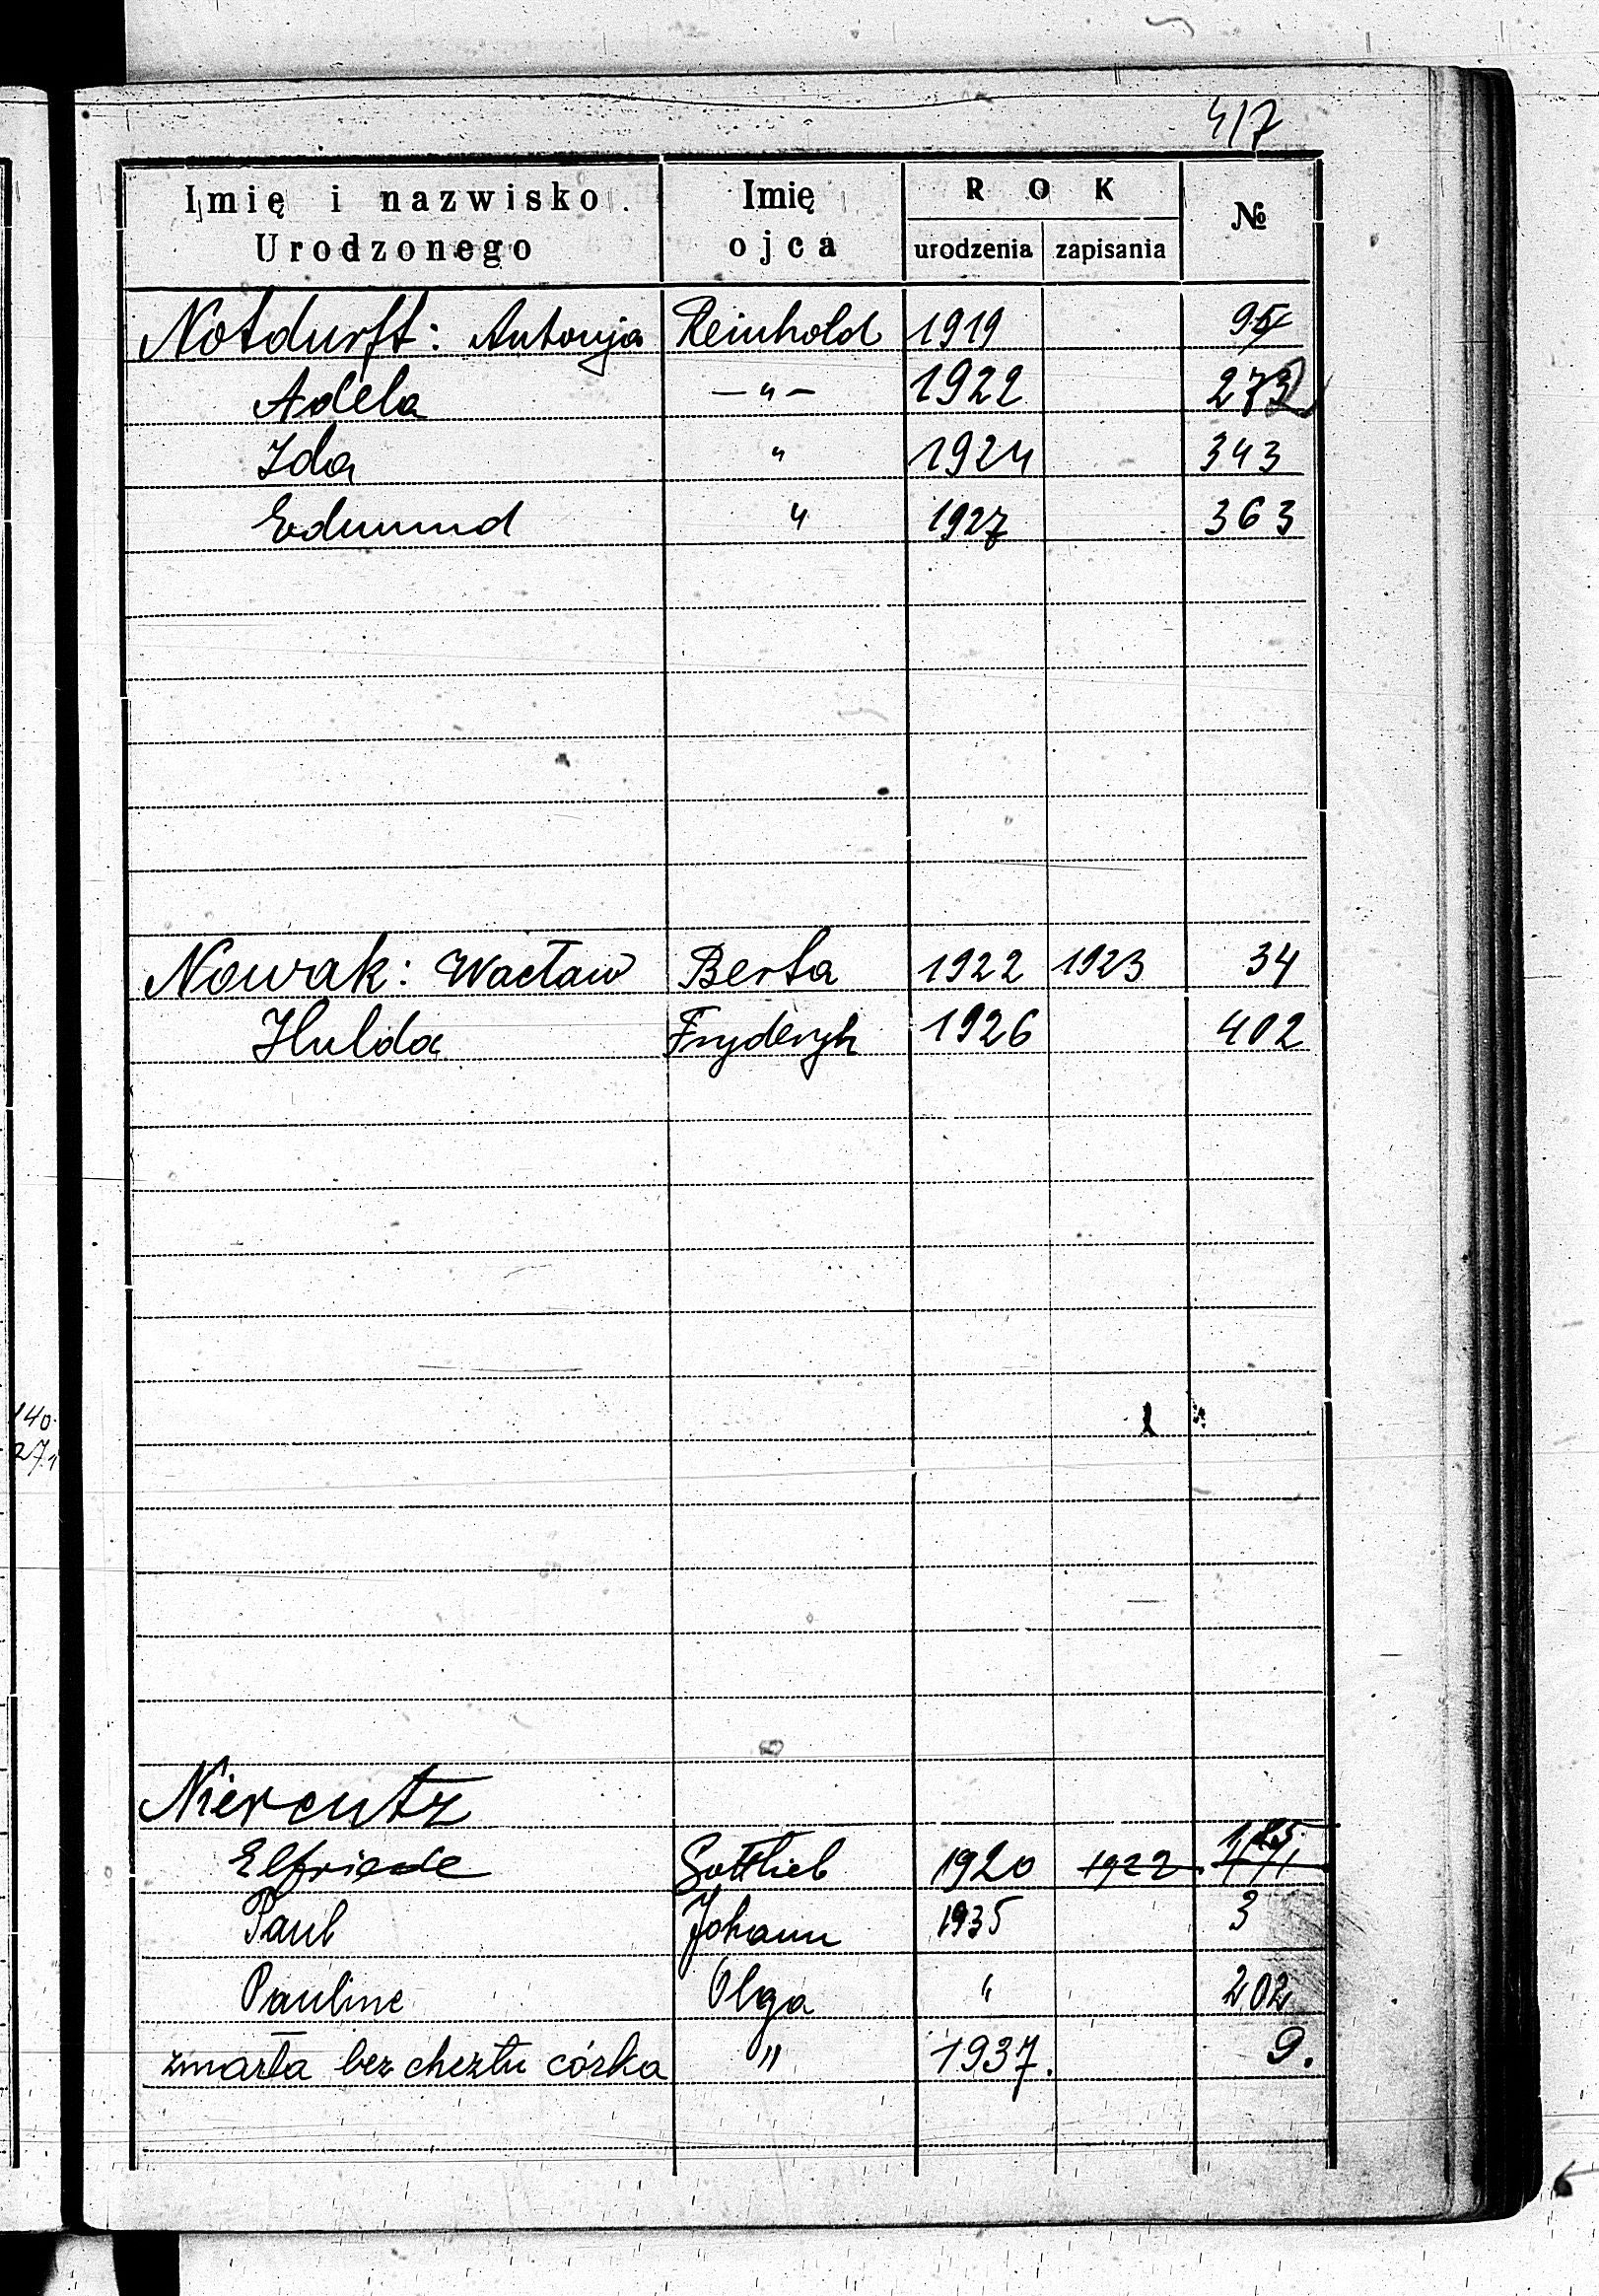 417
Imię i nazwisko Urodzonego | Imię ojca | ROK urodzenia | zapisania | №
Notdurft: Antonja Reinhold 1919 95
Adela — " — 1922 273
Ida " 1924 343
Edmund " 1927 363
Nowak: Wacław Berta 1922 1923 34
Hulda Fryderyk 1926 402
Nierentz
Elfriede Gottlieb 1920 1922
Paul Johann 1935 3
Pauline Olga " 202
zmarła bez chrztu córka " 1937. 9.
140
271